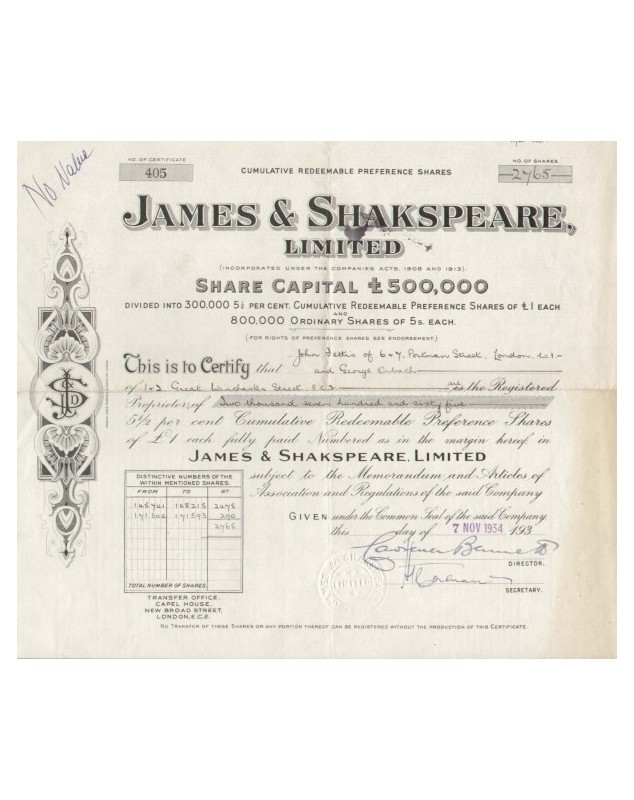 No Value
NO. OF CERTIFICATE
405
CUMULATIVE REDEEMABLE PREFERENCE SHARES
NO. OF SHARES
2765
JAMES & SHAKSPEARE,
LIMITED
(INCORPORATED UNDER THE COMPANIES ACTS, 1908 AND 1913).
SHARE CAPITAL £500,000
DIVIDED INTO 300,000 5½ PER CENT. CUMULATIVE REDEEMABLE PREFERENCE SHARES OF £1 EACH
AND
800,000 ORDINARY SHARES OF 5s. EACH.
(FOR RIGHTS OF PREFERENCE SHARES SEE ENDORSEMENT)
This is to Certify that John of 6 & 7, Portman Street, London, W.1.
and George
of 1 & 2 Great Winchester Street, E.C.2 are is the Registered
Proprietor of Two thousand seven hundred and sixty five
5½ per cent Cumulative Redeemable Preference Shares
of £1 each fully paid Numbered as in the margin hereof in
JAMES & SHAKSPEARE, LIMITED
subject to the Memorandum and Articles of
Association and Regulations of the said Company
GIVEN under the Common Seal of the said Company
this day of 7 NOV 1934 193
DIRECTOR.
SECRETARY.
DISTINCTIVE NUMBERS OF THE
WITHIN MENTIONED SHARES.
FROM TO Nº
148215 2475
141304 141593 290
2765
TOTAL NUMBER OF SHARES.
TRANSFER OFFICE,
CAPEL HOUSE,
NEW BROAD STREET,
LONDON, E.C.2.
NO TRANSFER OF THESE SHARES OR ANY PORTION THEREOF CAN BE REGISTERED WITHOUT THE PRODUCTION OF THIS CERTIFICATE.